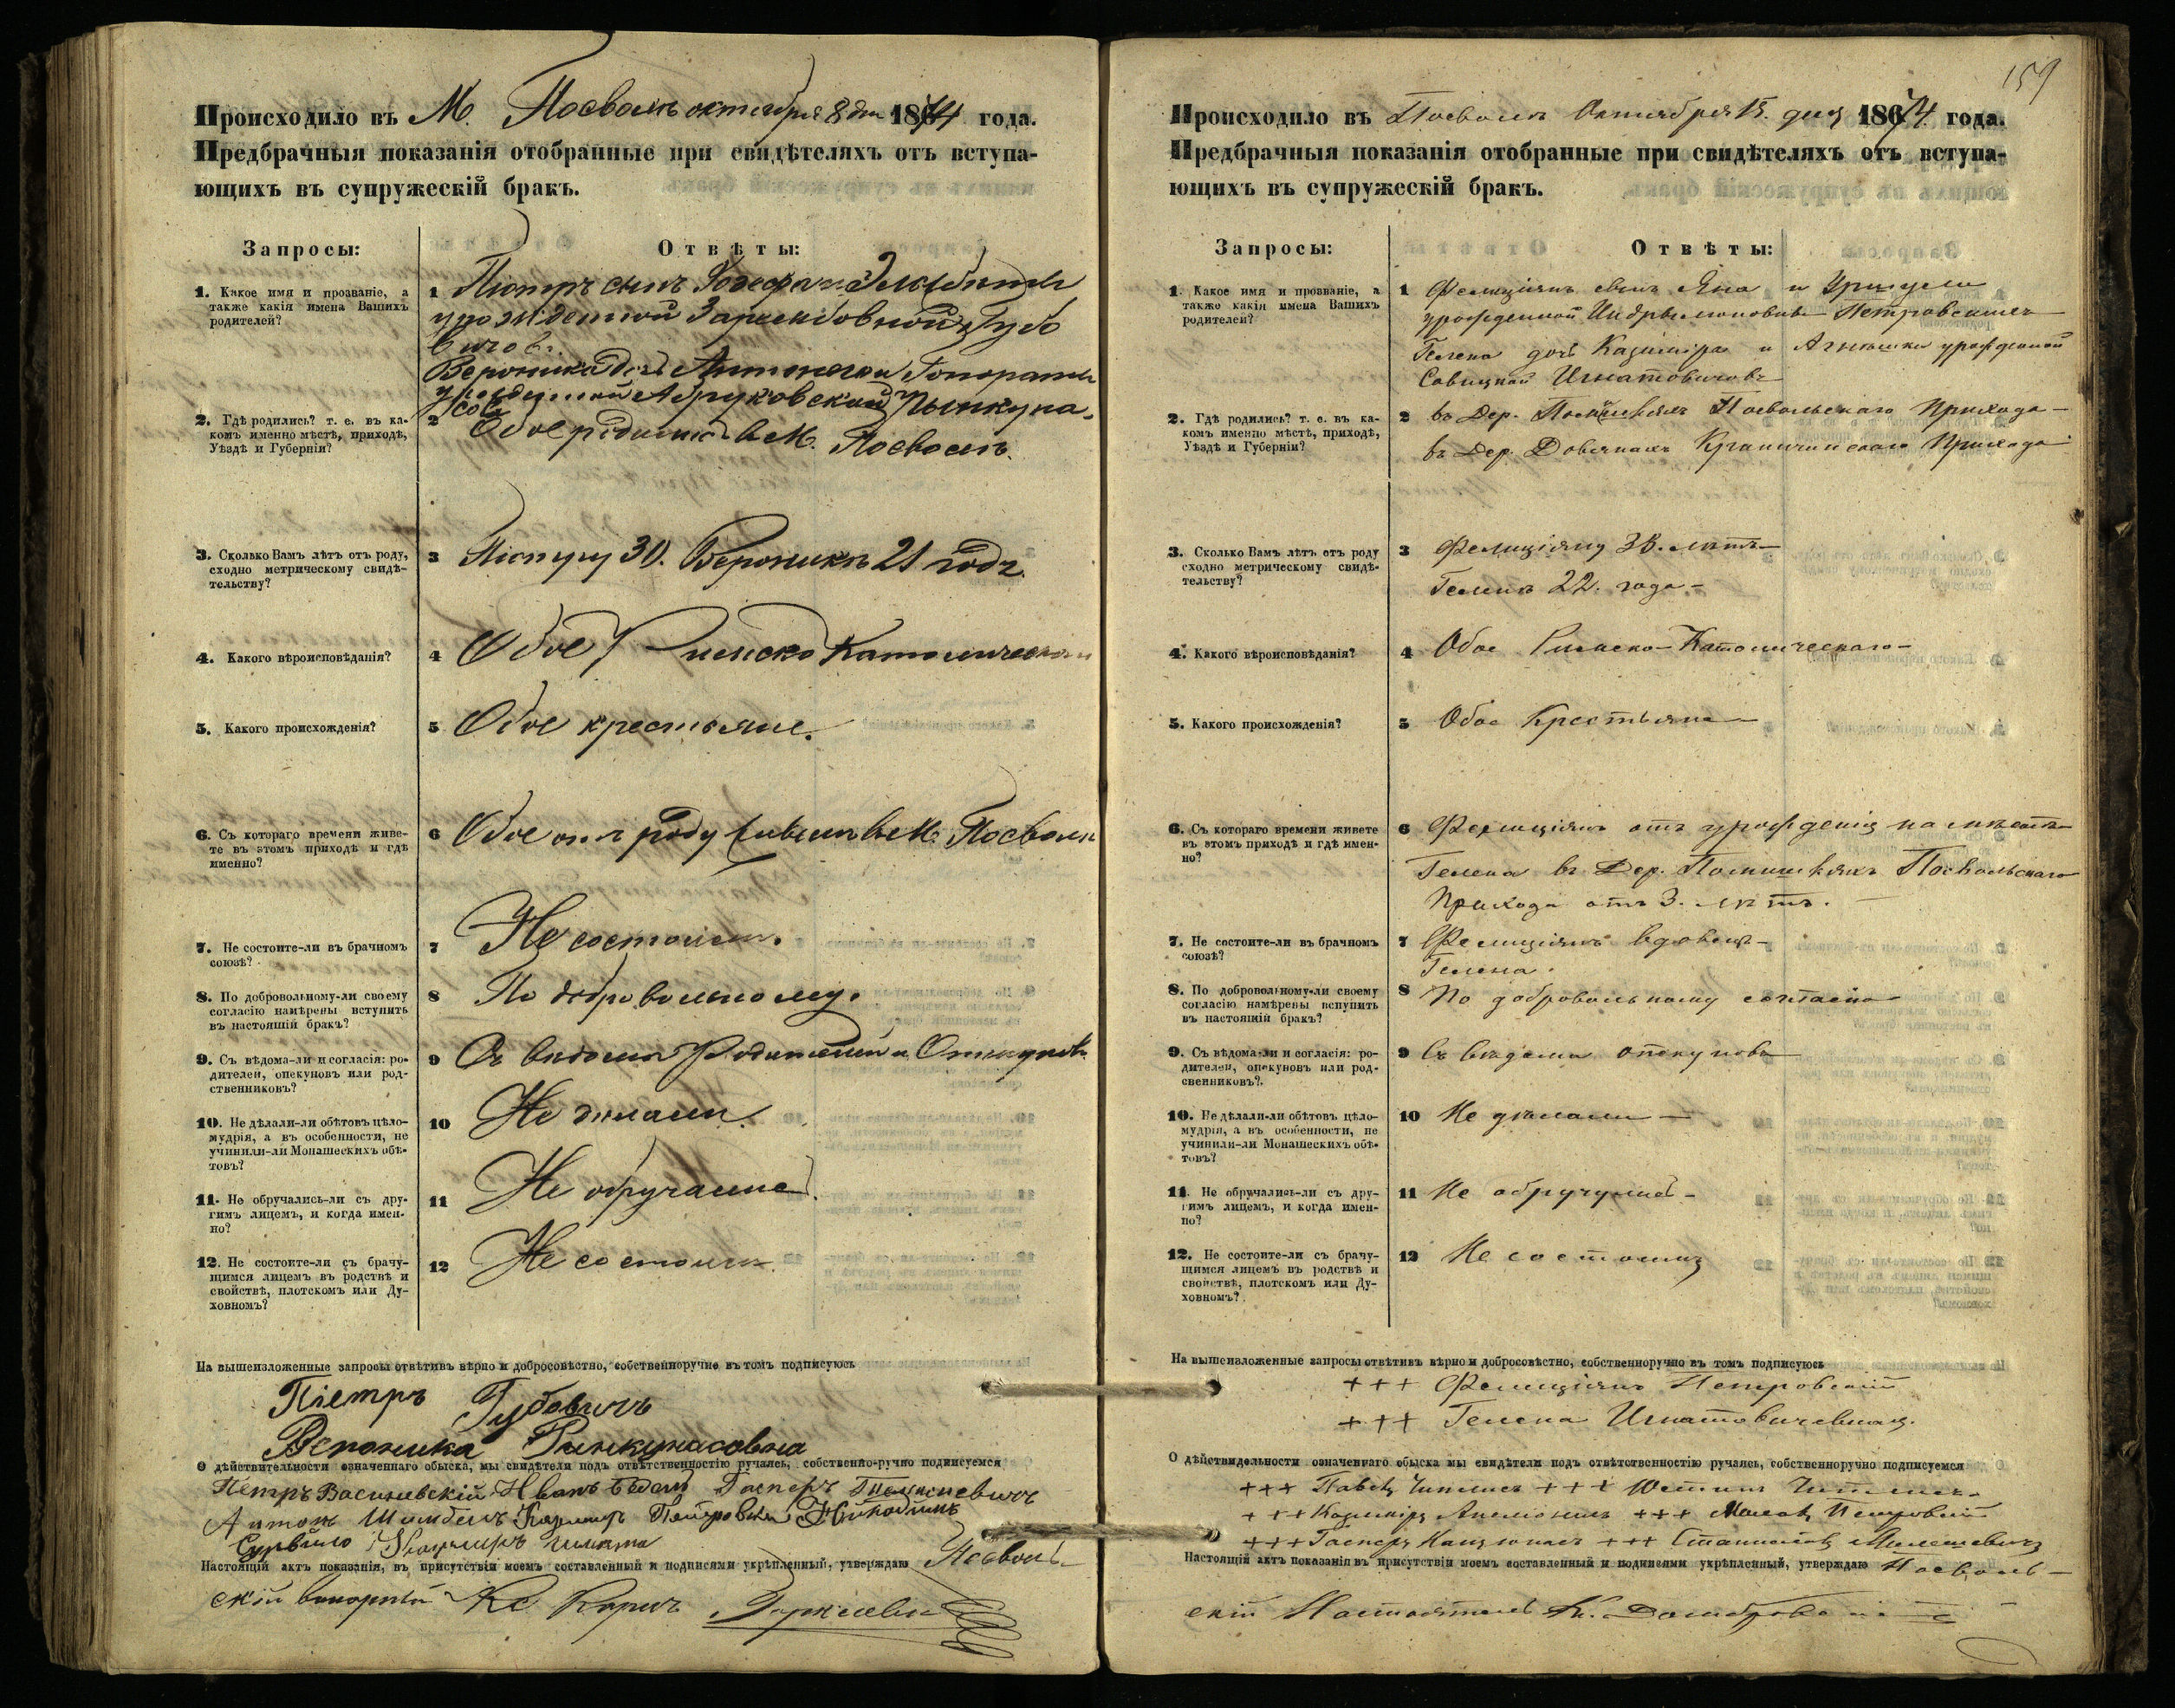 Происходило въ М. Посволѣ октября 8 дня 1874 года.
Предбрачныя показанія отобранные при свидѣтеляхъ отъ вступа-
ющихъ въ супружескій бракъ.
Запросы:
Отвѣты:
1. Какое имя и прозваніе, а
также какія имена Вашихъ
родителей?
1 Піотръ сынъ Іозефа и Эльжбеты
урожденной
Вероника дочь Антонего и Гонораты
урожденной
2. Гдѣ родились? т. е. въ ка-
комъ именно мѣстѣ, приходѣ,
Уѣздѣ и Губерніи?
2 Обое родились въ М. Посволѣ.
3. Сколько Вамъ лѣтъ отъ роду,
сходно метрическому свидѣ-
тельству?
3 Піотру 30. Вероникѣ 21 годъ.
4. Какого вѣроисповѣданія?
4 Обое Римско Католическаго
5. Какого происхожденія?
5 Обое крестьяне.
6. Съ котораго времени живе-
те въ этомъ приходѣ и гдѣ
именно?
6 Обое отъ роду въ М. Посволѣ
7. Не состоите-ли въ брачномъ
союзѣ?
7 Не состоимъ.
8. По добровольному-ли своему
согласію намѣрены вступить
въ настоящій бракъ?
8 По добровольному.
9. Съ вѣдома-ли и согласія: ро-
дителей, опекуновъ или род-
ственниковъ?
9 Съ вѣдома Родителей и Опекуновъ
10. Не дѣлали-ли обѣтовъ цѣло-
мудрія, а въ особенности, не
учинили-ли Монашескихъ обѣ-
товъ?
10 Не дѣлали.
11. Не обручались-ли съ дру-
гимъ лицемъ, и когда имен-
но?
11 Не обручались.
12. Не состоите-ли съ брачу-
щимся лицемъ въ родствѣ и
свойствѣ, плотскомъ или Ду-
ховномъ?
12 Не состоимъ.
На вышеизложенные запросы отвѣтивъ вѣрно и добросовѣстно, собственноручно въ томъ подписуюсь
Піетръ Губовичъ
Вероника Пинкунасовна
О дѣйствительности означеннаго обыска, мы свидѣтели подъ отвѣтственностію ручаясь, собственно-ручно подписуемся
Петръ Василевскій Иванъ Гаспоръ
Антонъ Казимиръ Петровскій
Настоящій актъ показанія, въ присутствіи моемъ составленный и подписями укрѣпленный, утверждаю Посволь-
скій Викарный Кс
159
Происходило въ Посволѣ Октября 15. дня 1874. года.
Предбрачныя показанія отобранные при свидѣтеляхъ отъ вступа-
ющихъ въ супружескій бракъ.
Запросы:
Отвѣты:
1. Какое имя и прозваніе, а
также какія имена Вашихъ
родителей?
1 Фелиціянъ сынъ Яна и Уршули
урожденной Петровскихъ
Гелена дочь Казиміра и Агнѣшки урожденной
Савицкой Игнатовичовъ
2. Гдѣ родились? т. е. въ ка-
комъ именно мѣстѣ, приходѣ,
Уѣздѣ и Губерніи?
2 въ Дер. Посвольскаго Прихода
въ Дер. Довянахъ Прихода
3. Сколько Вамъ лѣтъ отъ роду
сходно метрическому свидѣ-
тельству?
3 Фелиціяну 38. лѣтъ
Геленѣ 22. года
4. Какого вѣроисповѣданія?
4 Обое Римско-Католическаго
5. Какого происхожденія?
5 Обое Крестьяне
6. Съ котораго времени живете
въ этомъ приходѣ и гдѣ имен-
но?
6 Фелиціянъ отъ урожденія на мѣстѣ
Гелена въ Дер. Посвольскаго
Прихода отъ 3. лѣтъ.
7. Не состоите-ли въ брачномъ
союзѣ?
7 Фелиціянъ вдовецъ
Гелена
8. По добровольному-ли своему
согласію намѣрены вступить
въ настоящій бракъ?
8 По добровольному согласію
9. Съ вѣдома-ли и согласія: ро-
дителей, опекуновъ или род-
свенниковъ?
9 Съ вѣдома опекуновъ
10. Не дѣлали-ли обѣтовъ цѣло-
мудрія, а въ особенности, не
учинили-ли Монашескихъ обѣ-
товъ?
10 Не дѣлали
11. Не обручались-ли съ дру-
гимъ лицемъ, и когда имен-
но?
11 Не обручились
12. Не состоите-ли съ брачу-
щимся лицемъ въ родствѣ и
свойствѣ, плотскомъ или Ду-
ховномъ?
12 Не состоимъ
На вышеизложенные запросы отвѣтивъ вѣрно и добросовѣстно, собственноручно въ томъ подписуюсь
+++ Фелиціянъ Петровскій
+++ Гелена Игнатовичевна
О дѣйствидельности означеннаго обыска мы свидѣтели подъ отвѣтотвенностію ручаясь, собственноручно подписуемся
+++ Павелъ +++ Юстинъ
+++ Казиміръ +++ Петровскій
+++ Гаспоръ +++ Станиславъ Милешевичъ
Настоящій актъ показанія въ присутствіи моемъ составленный и подписями укрѣпленный, утверждаю Посволь-
скій Настоятель Кс. Домбровскій